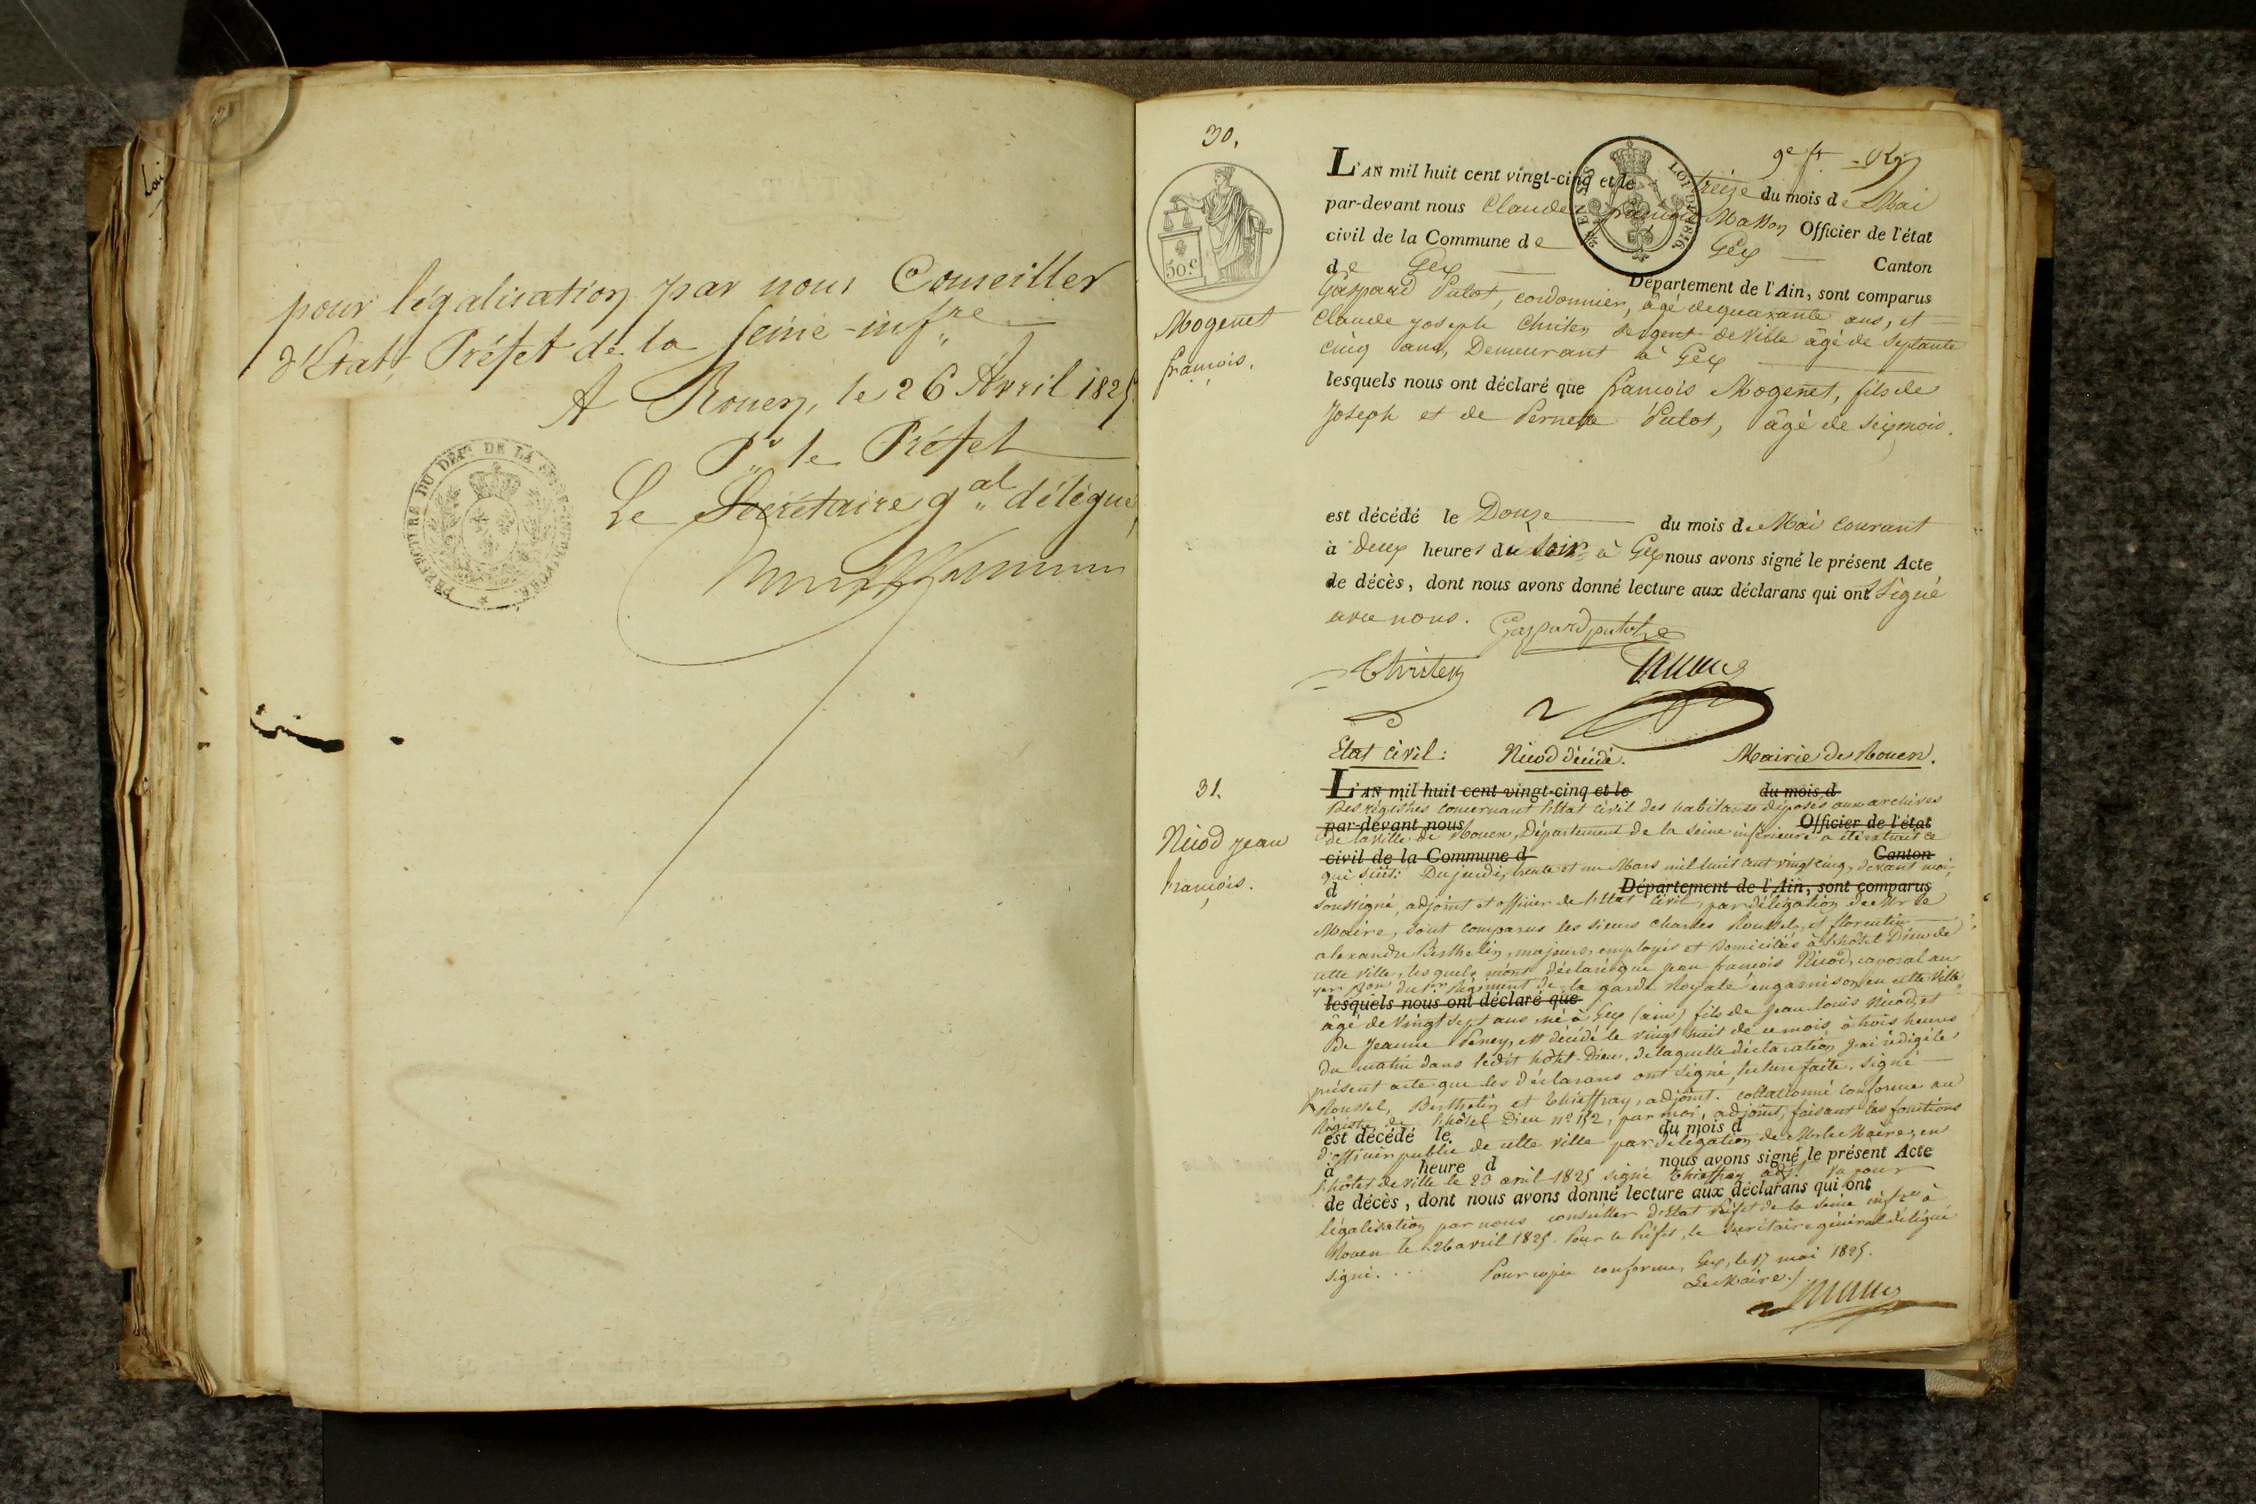 Loi
pour légalisation par nous Conseiller
d'Etat, Préfet de la Seine-infre
A Rouen, le 26 Avril 1825
Pr le Préfet
Le Secrétaire gal délégué,
PREFECTURE DU DÉPt DE LA SEINE-INFERIEURE
30.
9e ft
L'AN mil huit cent vingt-cinq et le treize du mois de Mai
par-devant nous Claude françois Masson Officier de l'état
civil de la Commune de Gex Canton
de Gex Département de l'Ain, sont comparus
Gaspard Putot, cordonnier, âgé de quarante ans, et
Claude Joseph Christen Sergent de ville âgé de Septante
cinq ans, Demeurant à Gex
lesquels nous ont déclaré que françois Mogenet, fils de
Joseph et de Pernette Putot, âgé de six mois.
LOI DE 1816
50.c
Mogenet
françois.
est décédé le Douze du mois de Mai courant
à deux heures du soir à Gex nous avons signé le présent Acte
de décès, dont nous avons donné lecture aux déclarans qui ont Signé
avec nous. Gaspard putot
Christen
Etat civil: Nicod décédé. Mairie de Rouen.
31.
Nicod jean
françois.
L'AN mil huit cent vingt-cinq et le du mois d
Des régistres concernant l'état civil des habitants déposés aux archives
par-devant nous Officier de l'état
de la ville de Rouen, Département de la Seine inférieure a été extrait ce
civil de la Commune d Canton
qui suit: Du jeudi, trente et un Mars mil huit cent vingt cinq, devant moi,
d Département de l'Ain, sont comparus
soussigné, adjoint et officier de l'état civil, par délégation de Mr le
Maire, sont comparus les sieurs Charles Roussel, et florentin
alexandre Berthelin, majeurs, employés et Domiciliés à l'hôtel Dieu de
cette ville, lesquels m'ont déclaré que jean françois Nicod, caporal au
1er Bon du 1er Régiment de la garde Royale en garnison en cette ville
lesquels nous ont déclaré que
âgé de vingt sept ans né à Gex (ain) fils de jean louis Nicod, et
de Jeanne Peney, est décédé le vingt huit de ce mois à trois heures
du matin dans ledit hôtel-Dieu, de laquelle déclaration j'ai rédigé le
présent acte que les déclarans ont signé, lecture faite. Signé
Roussel, Berthelin et Thieffray, adjoint. collationné conforme au
Régistre de l'hôtel Dieu no 152, par moi, adjoint, faisant les fonctions
est décédé le du mois d
d'officier public de cette ville par délégation de Mr le Maire, en
à heure d nous avons signé le présent Acte
l'hôtel de ville le 23 avril 1825 signé Thieffray adjt Vu pour
de décès, dont nous avons donné lecture aux déclarans qui ont
légalisation par nous conseiller d'Etat Préfet de la Seine infre à
Rouen le 26 avril 1825. Pour le Préfet, le Secrétaire général délégué
signé. . . . Pour copie conforme, Gex, le 17 mai 1825.
Le Maire